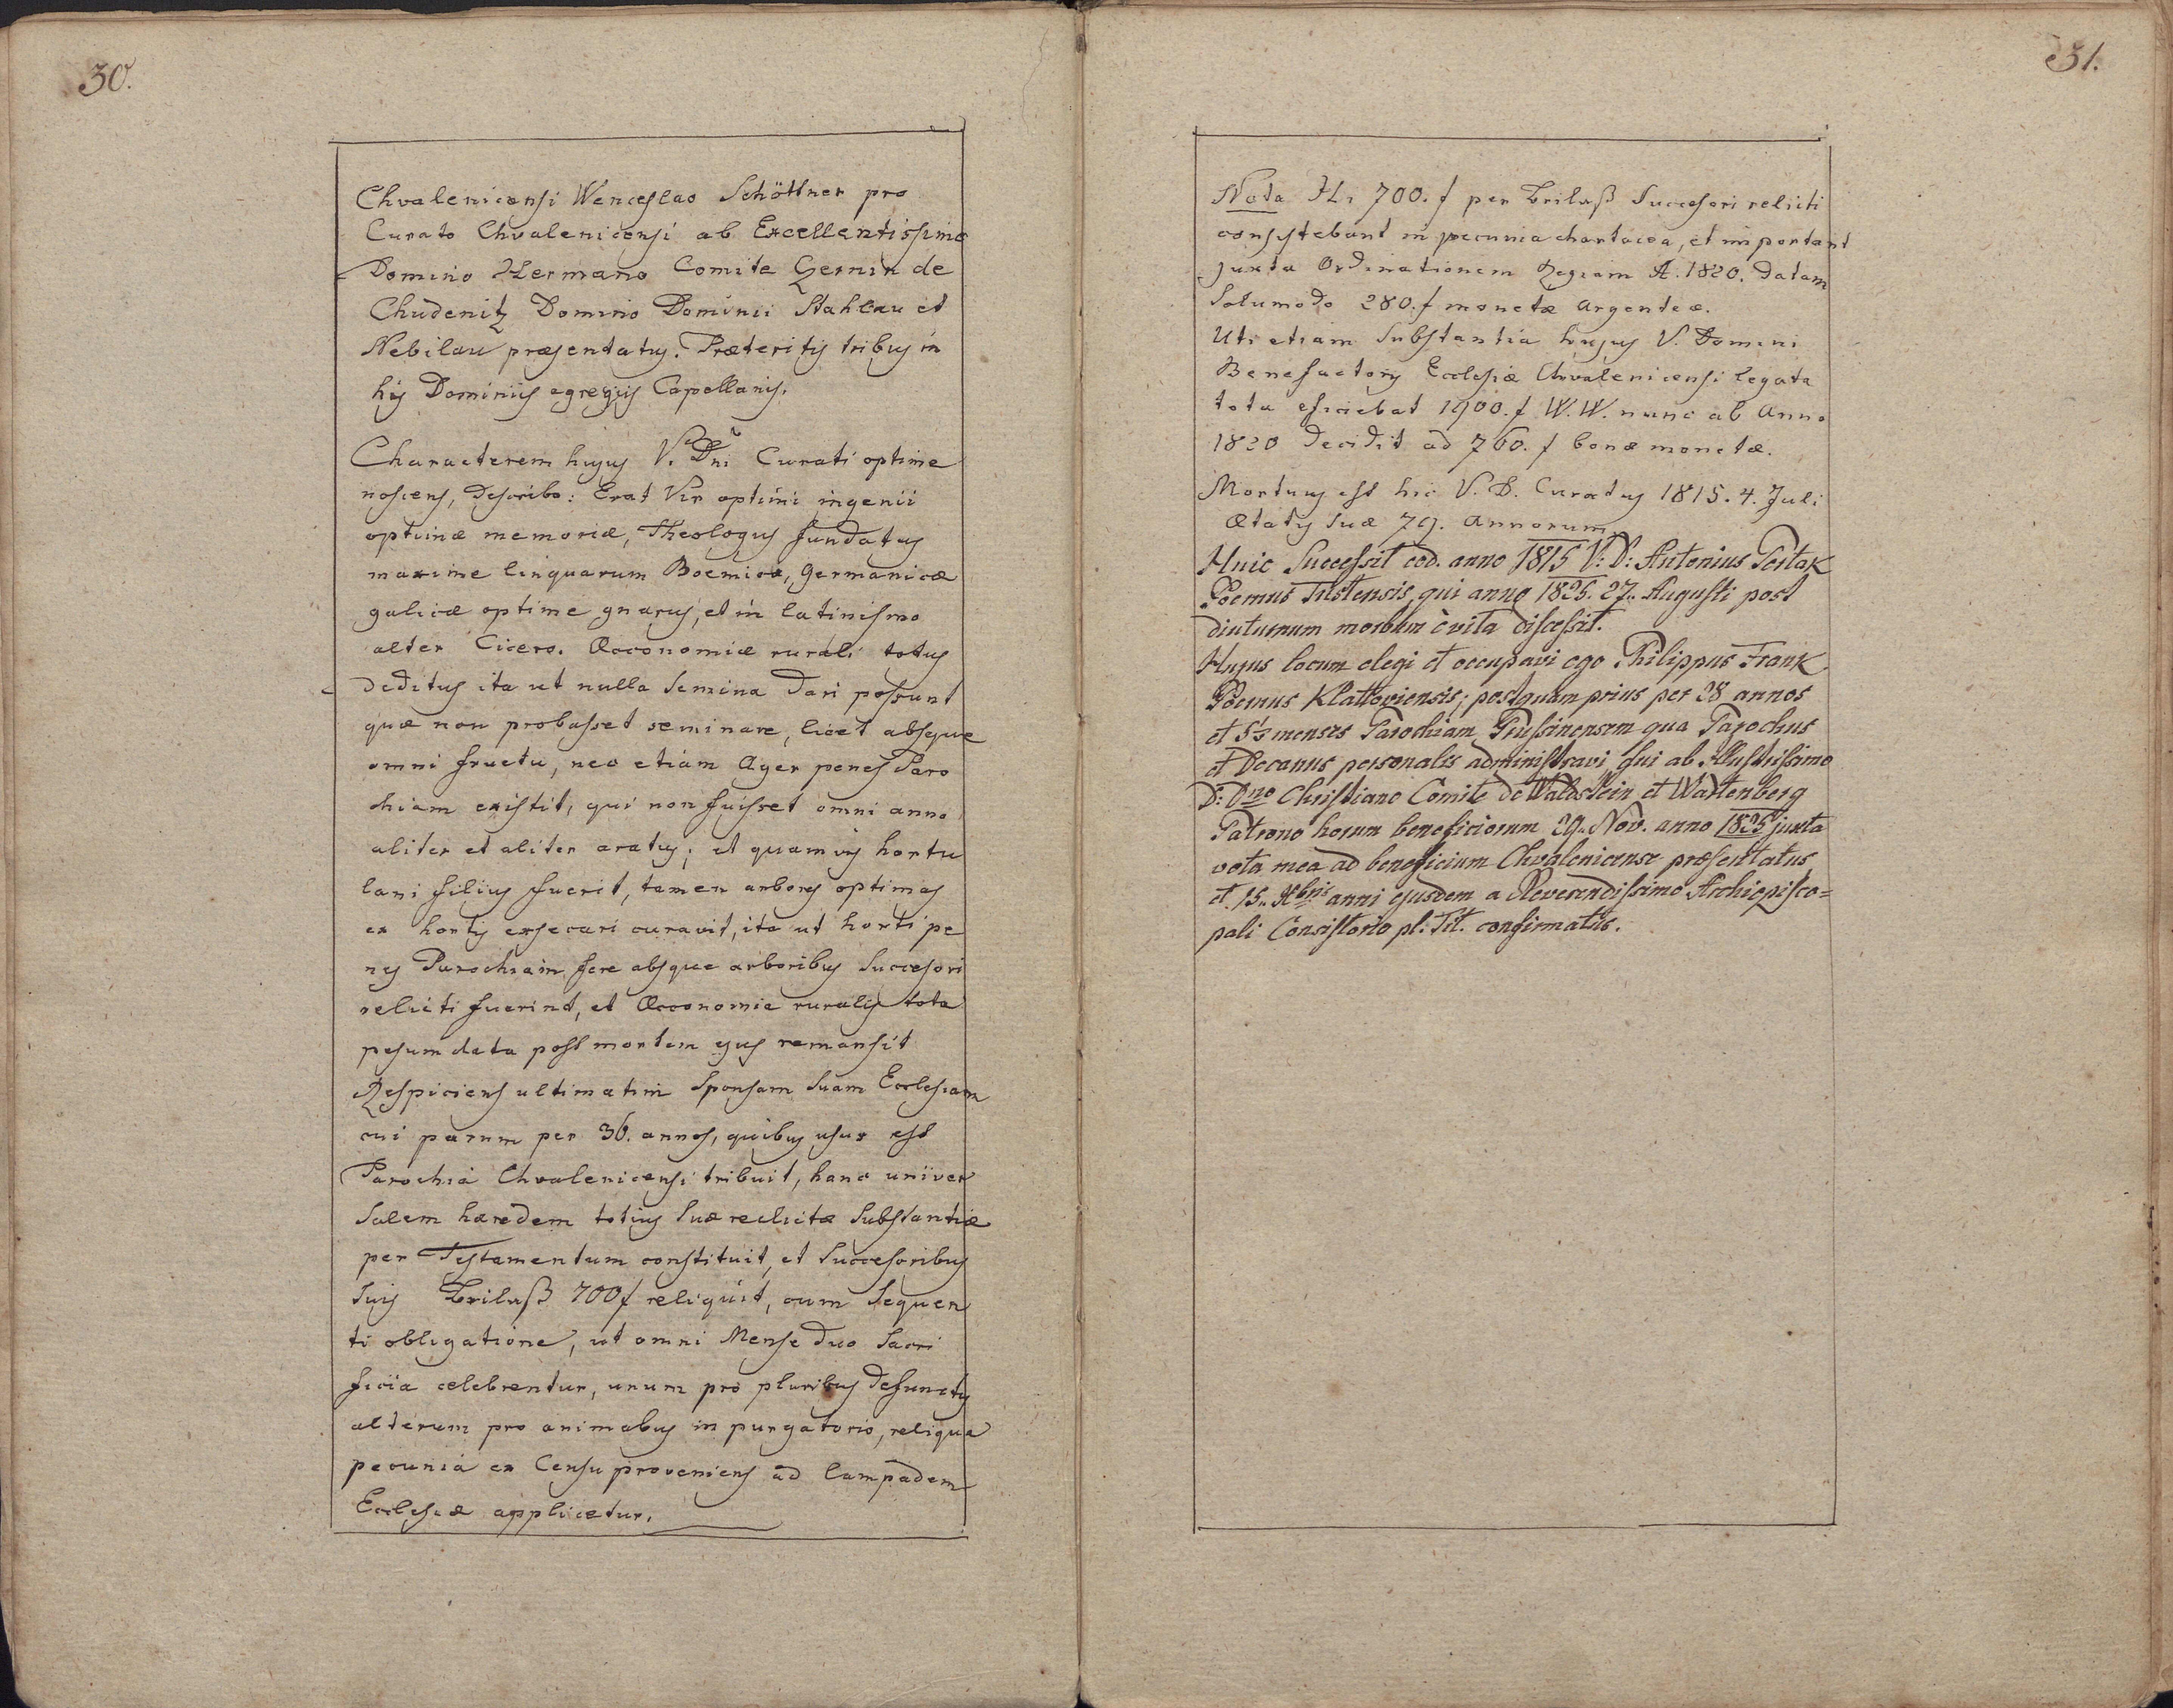 30.
Chvalenicensi Wenceslao Schöttner pro
Curato Chvalenicensi ab Excellentissimo
Domino Hermano Comite Czernin de
Chudenitz Domino Dominii Stahlau et
Nebilau præsentatus. Præteritis tribus in
his Dominiis egregiis Capellanis.
Characterem hujus V. Dni Curati optime
noscens, describo: Erat Vir optimi ingenii
optimæ memoriæ, Theologus fundatus
maxime linquarum Boemicæ, Germanicæ
galicæ optime gnarus, et in latinismo
alter Cicero. Œconomiæ rurali totus
deditus ita ut nulla semina dari possunt
quæ non probasset seminare, licet absque
omni fructu, nec etiam Ager penes Paro
chiam existit, qui non fuisset omni anno
aliter et aliter aratus; et quamvis hortu
lani filius fuerit, tamen arbores optimas
ex hortis exsecari curavit, ita ut horti pe
nes Parochiam fere absque arboribus Succesori
relicti fuerint, et Œconomia ruralis tota
pesum data post mortem ejus remansit
Respiciens ultimatim Sponsam suam Ecclesiam
cui parum per 36. annos, quibus usus est
Parochia Chvalenicensi tribuit, hanc univer
salem hæredem totius suæ relictæ Substantiæ
per Testamentum constituit, et Succesoribus
suis Brilaß 700 f reliquit, cum sequen
ti obligatione, ut omni Mense duo Sacri
ficia celebrentur, unum pro pluribus defunctis
alterum pro animabus in purgatorio, reliqua
pecunia ex Censu proveniens ad lampadem
Ecclesiæ applicetur.
31.
Nota Hi 700. f per Brilaß Succesori relicti
consistebant in pecunia chartacea, et important
juxta Ordinationem Regiam A. 1820. datam
Solumodo 280. f monetæ argenteæ.
Uti etiam Substantia hujus V. Domini
Benefactoris Ecclesiæ Chvalenicensi legata
tota eficiebat 1900. f W. W. nunc ab Anno
1820 decidit ad 760. f bonæ monetæ.
Mortuus est hic V. D. Curatus 1815. 4. Juli
Ætatis suæ 79. annorum
Huic Successit eod. anno 1815 V: D: Antonius Portak
Boemus Tustensis, qui anno 1825. 27. Augusti post
diuturnum morbum è vita discessit.
Hujus locum elegi et occupavi ego Philippus Frank
Boemus Klattoviensis; postquam prius per 28 annos
et 5½ menses Parochiam Prussinensem qua Parochus
et Decanus personalis administravi fui ab Illustrissimo
D: Dno Christiano Comite de Waldstein et Wartenberg
Patrono horum beneficiorum 29. Nov. anno 1825 juxta
vota mea ad beneficium Chvalenicense præsentatus
et 15. Xbris anni ejusdem a Reverendissimo Archiepisco=
pali Consistorio pl. Tit. confirmatus.